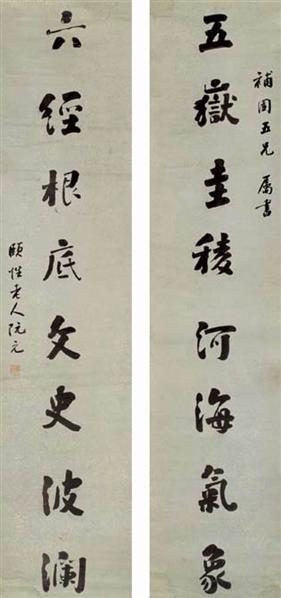 補周五兄 属書
五嶽圭稜河海氣象
六經根底文史波瀾
頤性老人阮元